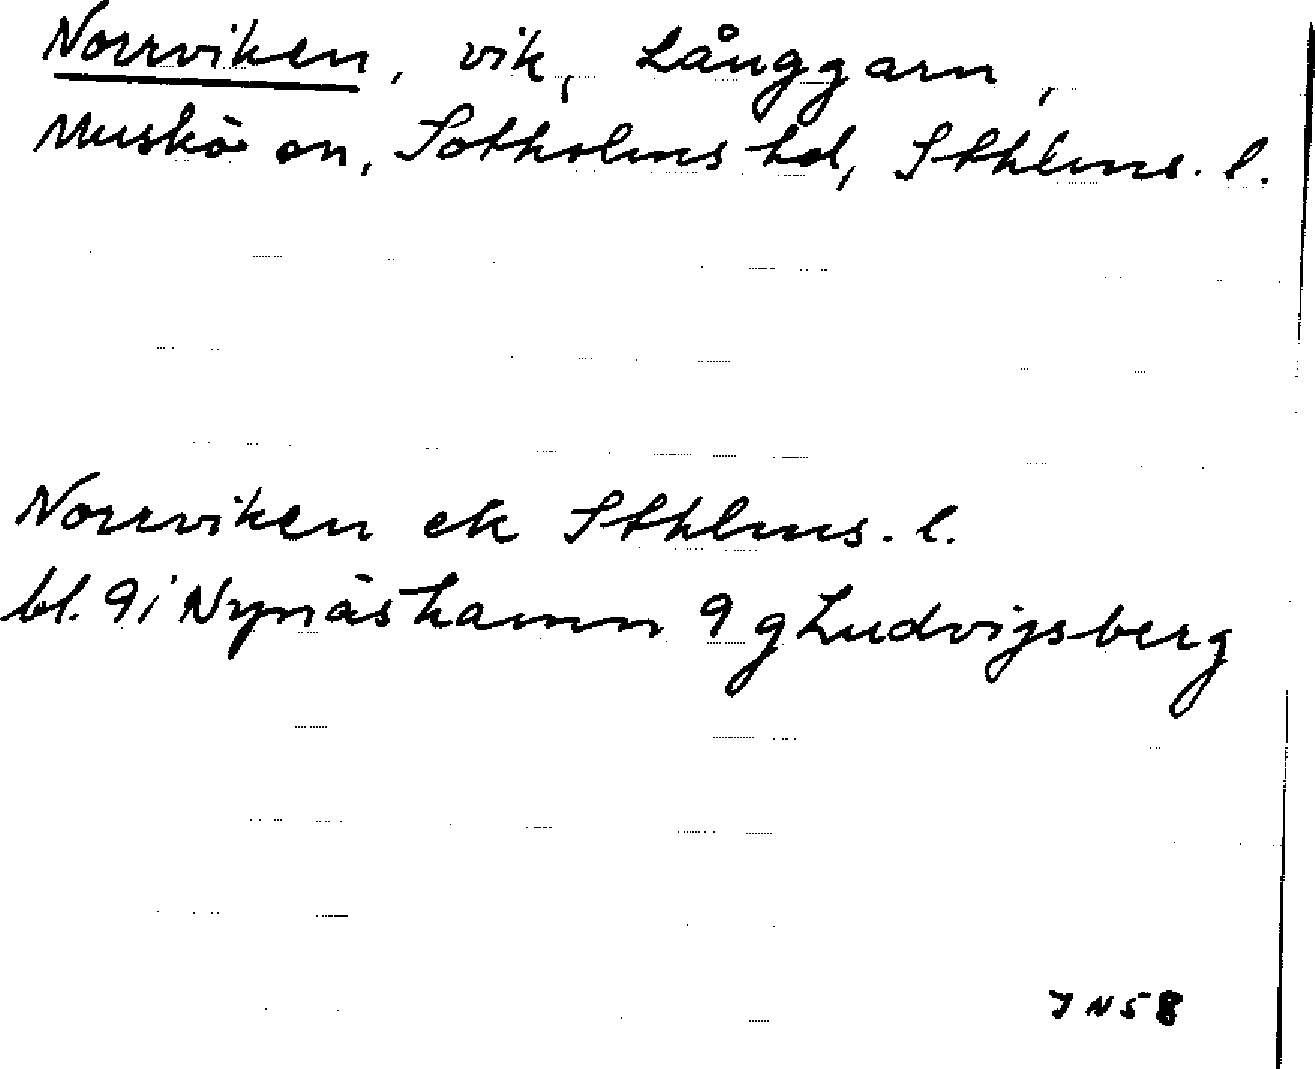 Norrviken, vik, Långgarn,
Muskö sn, Sotholms hd, Sthlms. l.
Norrviken ek Sthlms. l.
bl. 9i Nynäshamn 9 g Ludvigsberg
JN58